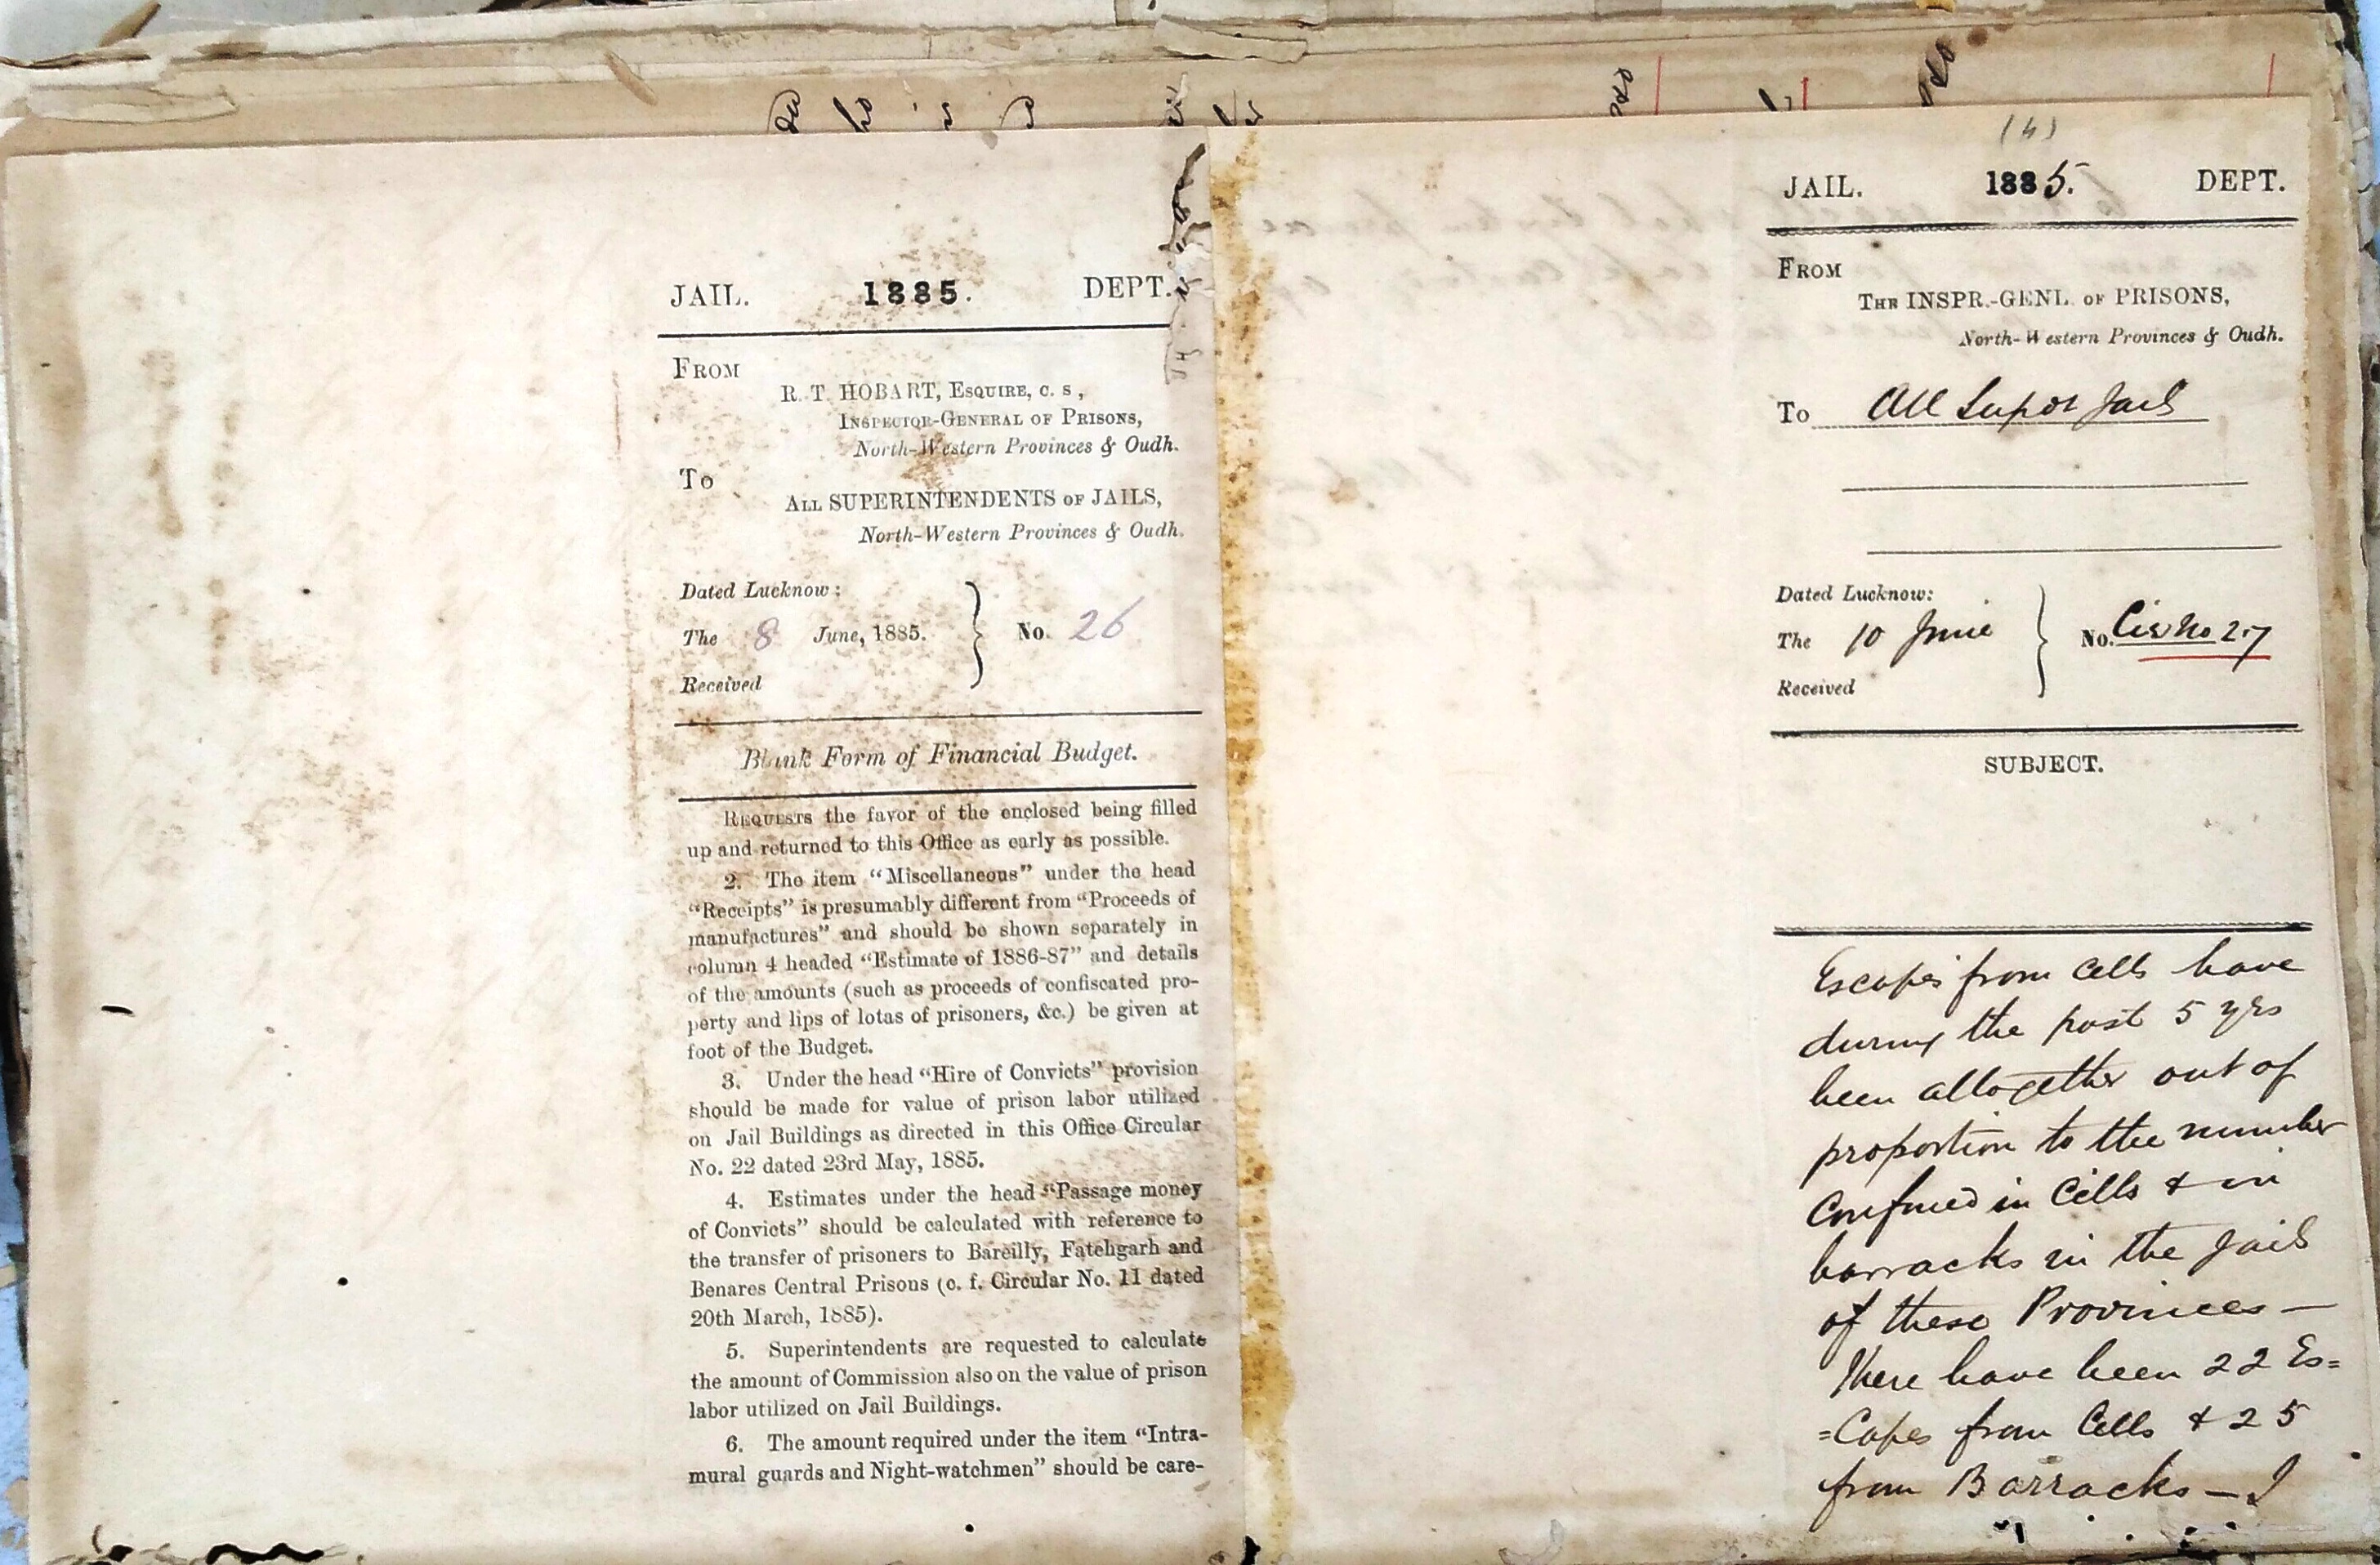 JAIL. 1885. DEPT.
FROM
R. T. HOBART, ESQUIRE, C. S,
INSPECTOR-GENERAL OF PRISONS,
North-Western Provinces & Oudh.
To
ALL SUPERINTENDENTS OF JAILS,
North-Western Provinces & Oudh.
Dated Lucknow:
The 8 June, 1885. No. 26
Received
Blank Form of Financial Budget.
REQUESTS the favor of the enclosed being filled
up and returned to this Office as early as possible.
2. The item "Miscellaneous" under the head
"Receipts" is presumably different from "Proceeds of
manufactures" and should be shown separately in
column 4 headed "Estimate of 1886-87" and details
of the amounts (such as proceeds of confiscated pro-
perty and lips of lotas of prisoners, &c.) be given at
foot of the Budget.
3. Under the head "Hire of Convicts" provision
should be made for value of prison labor utilized
on Jail Buildings as directed in this Office Circular
No. 22 dated 23rd May, 1885.
4. Estimates under the head "Passage money
of Convicts" should be calculated with reference to
the transfer of prisoners to Bareilly, Fatehgarh and
Benares Central Prisons (c. f. Circular No. 11 dated
20th March, 1885).
5. Superintendents are requested to calculate
the amount of Commission also on the value of prison
labor utilized on Jail Buildings.
6. The amount required under the item "Intra-
mural guards and Night-watchmen" should be care-
JAIL. 1885. DEPT.
FROM
THE INSPR.-GENL. OF PRISONS,
North-Western Provinces & Oudh.
To All Supdt Jails
Dated Lucknow:
The 10 June No. Cir No 27
Received
SUBJECT.
Escapes from Cells have
during the past 5 yrs
been altogether out of
proportion to the number
Confined in Cells & in
barracks in the Jails
of these Provinces —
There have been 22 Es=
=Capes from Cells & 25
from Barracks — I